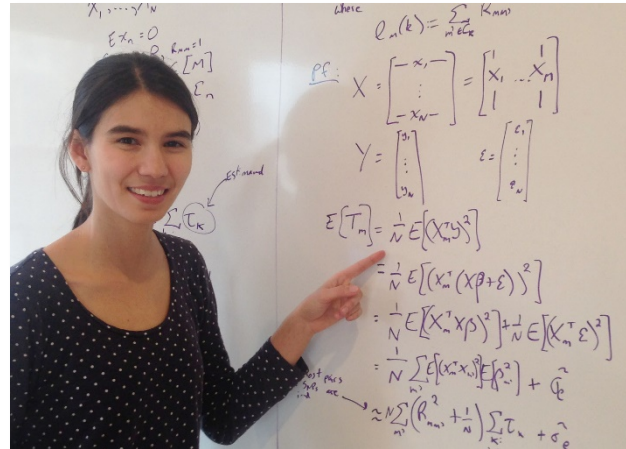 X₁,...,X_N
E X_n = 0
R_mm=1
[M]
Estimand
Σ τ_k
where
ℓ_m(k) = Σ_{m'∈C_k} R_mm'
Pf:
X = [—x₁— ⋮ —x_N—] = [X₁ ... X_m]
Y = [y₁ ⋮ y_N] ε = [ε₁ ⋮ ε_N]
E[T_m] = 1/N E[(X_mᵀy)²]
= 1/N E[(X_mᵀ(Xβ+ε))²]
= 1/N E[(X_mᵀXβ)²] + 1/N E[(X_mᵀε)²]
= 1/N Σ_{m'} E[(X_mᵀX_m')²] E[β²_m'] + σ̃_e
≈ N Σ_{m'} (R²_mm' + 1/N) Σ_k τ_k + σ̃_e